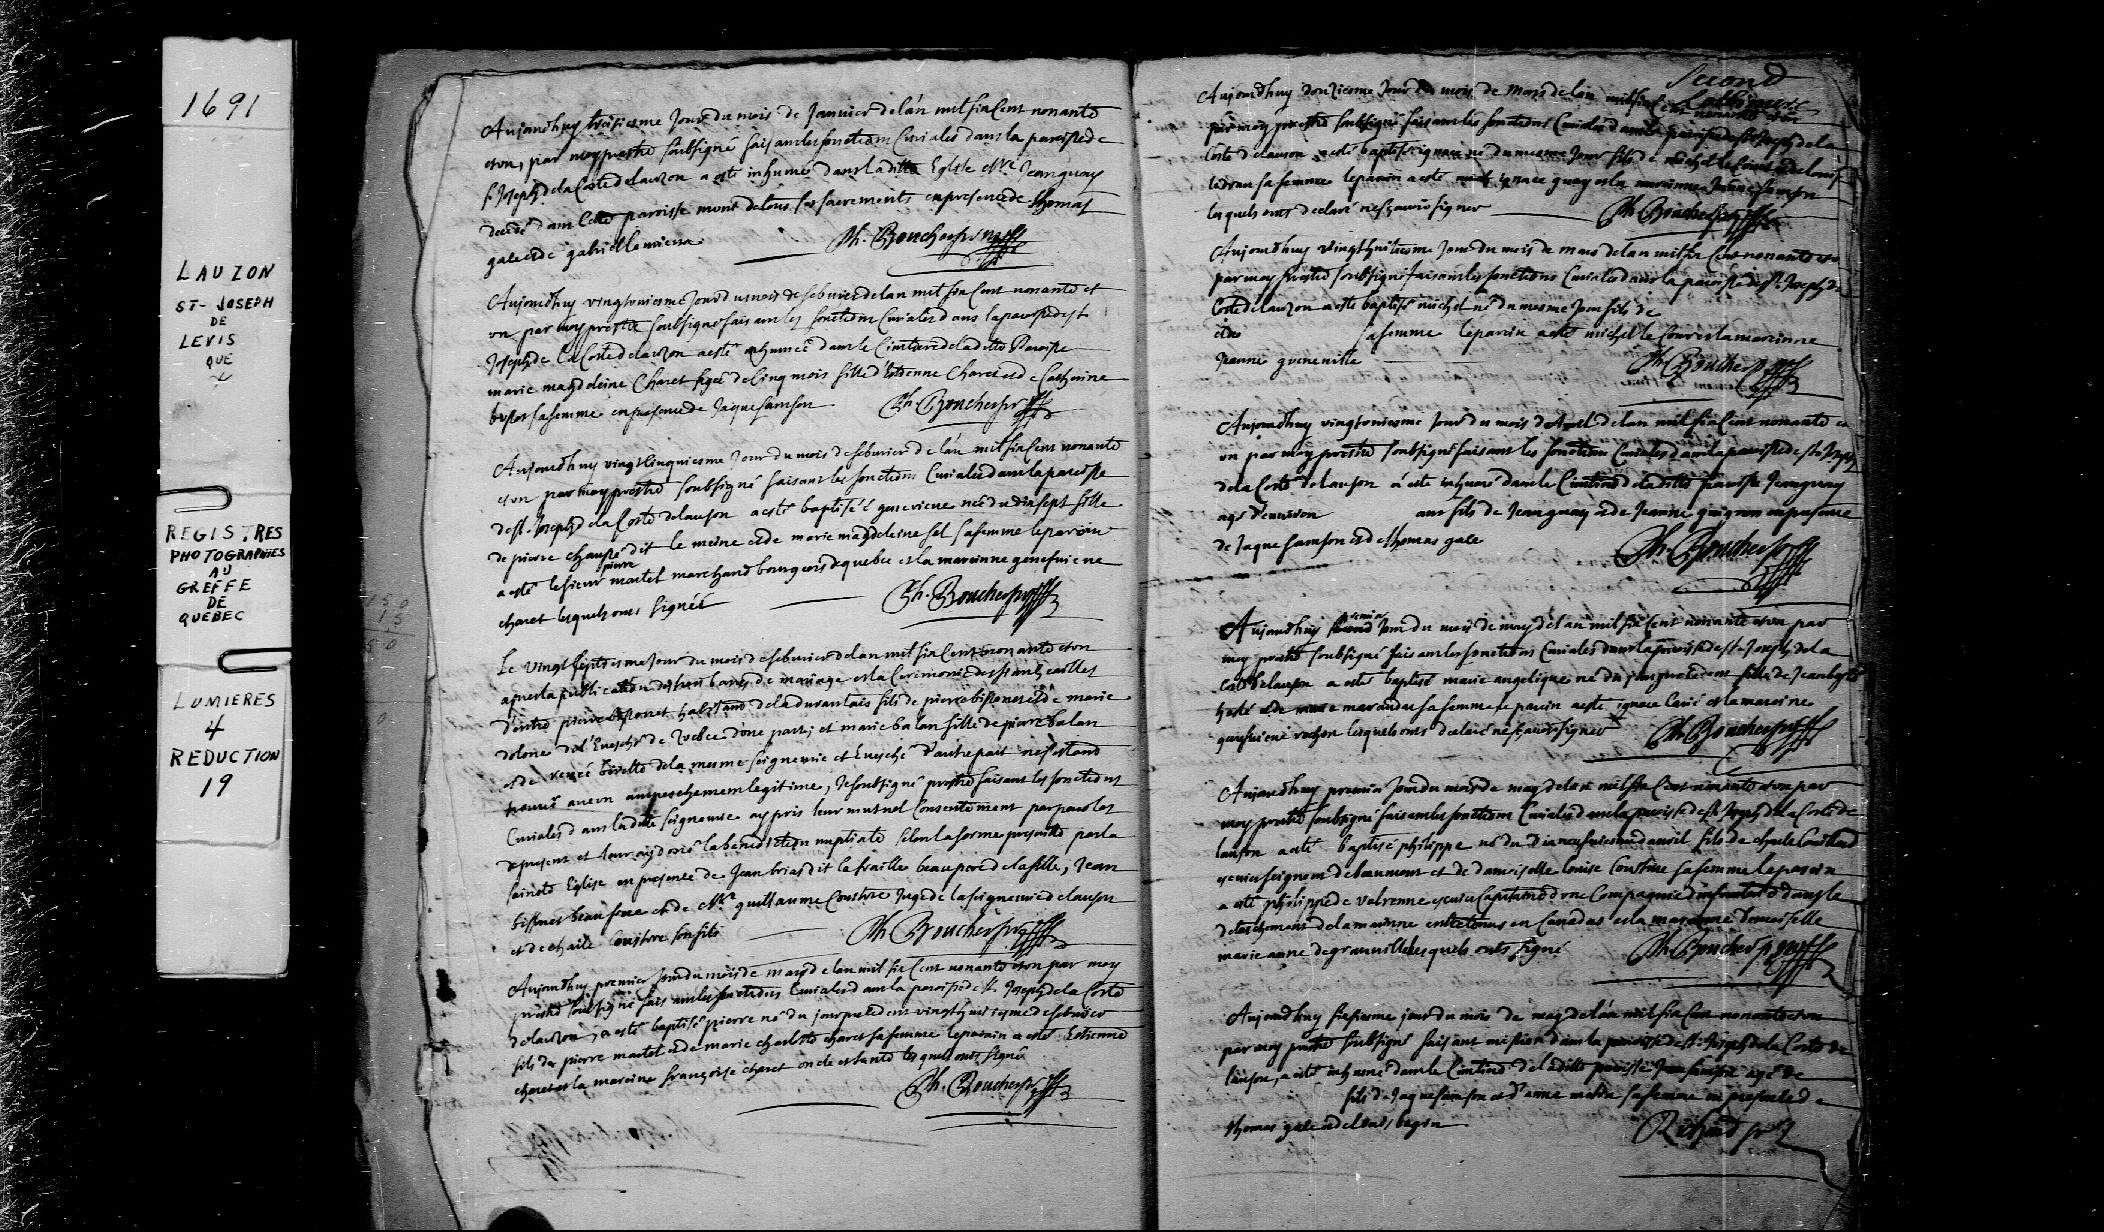 1691
LAUZON
ST-JOSEPH
DE
LEVIS
QUE
REGISTRES
PHOTOGRAPHIES
AU
GREFFE
DE
QUEBEC
LUMIERES
4
REDUCTION
19
Aujourdhuy treisiesme Jour du mois de Janvier de lan mil six Cent nonante
et un, par moy prestre soubsigné faisant les fonctions Curiales dans la paroisse de
st Joseph de la Coste de lauzon a esté inhumé dans la ditte Eglise Jean guay
decedé dans cette paroisse muni de tous ses sacrements en presence de thomas
gale et de gabriel
Ph. Boucher ptre
Aujourdhuy vingtroiesme Jour du mois de febvrier de lan mil six Cent nonante et
un par moy prestre soubsigné faisant les fonctions Curiales dans la paroisse de st
Joseph de la Coste de lauzon a esté inhumée dans le Cimetiere de la ditte Paroisse
marie magdeleine Charet agée de Cinq mois fille d'Estienne Charet et de Catherine
bissot sa femme en presence de Jaque samson
Ph. Boucher ptre
Aujourdhuy vingt Cinquiesme Jour du mois de febvrier de lan mil six Cent nonante
et un par moy prestre soubsigné faisant les fonctions Curiales dans la paroisse
de st. Joseph de la Coste de lauson a esté baptisée genevieve née du dix sept fille
de pierre dit le meine et de marie magdeleine sel sa femme le parain
a esté le sieur pierre martel marchand bourgeois de quebec et la maraine genefvieve
charet lesquels ont signés
Ph. Boucher ptre
Le vingt septiesme Jour du mois de febvrier de lan mil six Cent nonante et un
apres la publication des trois bans de mariage et la Ceremonie des fiançailles
d'entre pierre bissonet habitant de la durantaie fils de pierre bissonet et de marie
doloire de l'Evesché de Quebec d'une part; et marie balan fille de pierre balan
et de renée birette de la mesme seigneurie et Evesché d'autre part ne s'estant
trouvé aucun empeschement legitime, Je soubsigné prestre faisant les fonctions
Curiales dans la ditte seigneurie ay pris leur mutuel Consentement par paroles
de present et leur ay donné la benediction nuptiale selon la forme prescrite par la
sainte Eglise en presence de Jean briard dit la fraille beau pere de la fille, Jean
bissonet beau frere et de Mr guillaume Cousture Juge de la seigneurie de lauson
et de charle Cousture son fils
Ph. Boucher ptre
Aujourdhuy premier Jour du mois de mars de lan mil six Cent nonante et un par moy
prestre soubsigné faisant les fonctions Curiales dans la paroisse de st Joseph de la Coste
de lauzon, a esté baptisé pierre né du jour precedent vingt huitiesme de febvrier
fils de pierre martel et de marie charlotte charet sa femme le parain a esté Estienne
charet et la maraine françoise charet oncle et tante lesquels ont signé
Ph. Boucher ptre
second
Aujourdhuy douziesme Jour du mois de Mars de lan mil six Cent nonante et un
par moy prestre soubsigné faisant les fonctions Curiales dans la paroisse de st Joseph de la
Coste de lauson a esté baptisé ignace né du mesme Jour fils de michel le Cours et de louise
ledran sa femme le parain a esté ignace guay et la maraine Jeanne samson
lesquels ont declaré ne sçavoir signer
Ph. Boucher ptre
Aujourdhuy vingthuitiesme Jour du mois de mars de lan mil six Cent nonante et un
par moy prestre soubsigné faisant les fonctions Curiales dans la paroisse de st. Joseph de la
Coste de lauzon a esté baptisé michel né du mesme Jour fils de
et de sa femme le parain a esté michel le Cours et la maraine
Jeanne greneville
Ph. Boucher ptre
Aujourdhuy vingtroiesme Jour du mois d'Avril de lan mil six Cent nonante et
un par moy prestre soubsigné faisant les fonctions Curiales dans la paroisse de st. Joseph
de la Coste de lauson a esté inhumé dans le Cimetiere de la ditte paroisse Jean guay
agé d'environ ans fils de Jean guay et de Jeanne guignon en presence
de Jaque samson et de thomas gale
Ph. Boucher ptre
Aujourdhuy premier Jour du mois de may de lan mil six Cent nonante et un par
moy prestre soubsigné faisant les fonctions Curiales dans la paroisse de st Joseph de la
Coste de lauson a esté baptisé marie angelique née du jour precedent fille de Jean baptiste
halé et de marie maranda sa femme le parain a esté ignace et la maraine
genefvieve rochon lesquels ont declaré ne sçavoir signer
Ph. Boucher ptre
Aujourdhuy premier Jour du mois de may de lan mil six Cent nonante et un par
moy prestre soubsigné faisant les fonctions Curiales dans la paroisse de st Joseph de la Coste de
lauson a esté baptisé philippe né du dixneufviesme d'avril fils de charle Couillard
escuier seigneur de beaumont et de damoiselle louise Cousture sa femme le parain
a esté philippe de valrenne escuier Capitaine d'une Compagnie d'infanterie dans le
detachement de la marine entretenus en Canadas et la maraine damoiselle
marie anne de granville lesquels ont signé
Ph. Boucher ptre
Aujourdhuy sixiesme jour du mois de may de lan mil six Cent nonante et un
par moy prestre soubsigné faisant mission dans la paroisse de st. Joseph de la Coste de
lauson, a esté inhumé dans le Cimetiere de la ditte paroisse samson agé de
fils de Jaque samson et d'anne metru sa femme en presence de
thomas gale et de louis begin
Richard ptre